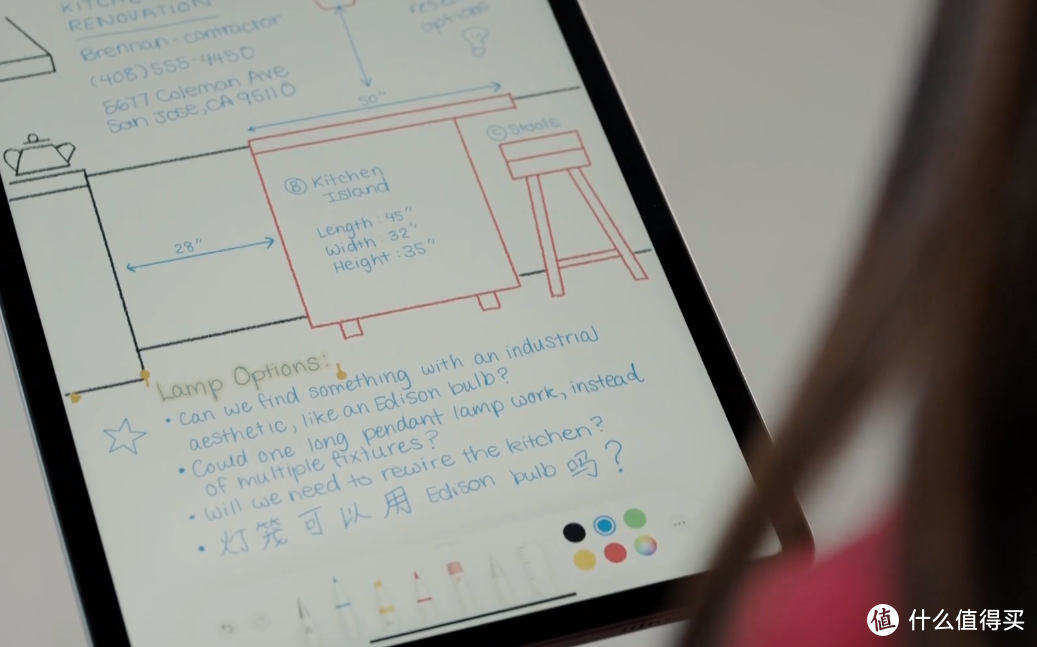 KITCHEN
RENOVATION
Brennan - contractor
(408) 555-4450
5677 Coleman Ave
San Jose, CA 95110
options
50"
Ⓒ Stools
Ⓑ Kitchen
Island
Length : 45"
Width : 32"
Height : 35"
28"
Lamp Options:
• Can we find something with an industrial
aesthetic, like an Edison bulb?
• Could one long pendant lamp work, instead
of multiple fixtures?
• Will we need to rewire the kitchen?
• 灯笼可以用 Edison bulb 吗?
值 什么值得买